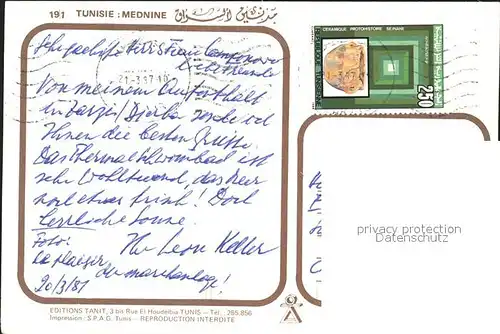 191 TUNISIE : MEDNINE مدنين السراق
CERAMIQUE PROTOHISTOIRE
REPUBLIQUE TUNISIENNE
250
Sehr geehrte
Von meinem Aufenthalt
in Zarzis/Djerba sende ich
Ihnen die besten Grüsse.
Das Thermalschwimmbad ist
sehr wohltuend, das Meer
noch etwas frisch! Doch
herrliche Sonne.
Ihr Leon Keller
Foto:
Le plaisir du marchandage!
20/3/87
privacy protection
Datenschutz
EDITIONS TANIT, 3 bis Rue El Houdeibia TUNIS – Tél. : 785.856
Impression : S.P.A.G. Tunis – REPRODUCTION INTERDITE